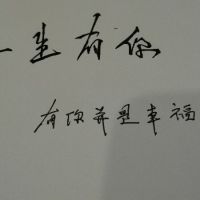 一生有你
有你是幸福